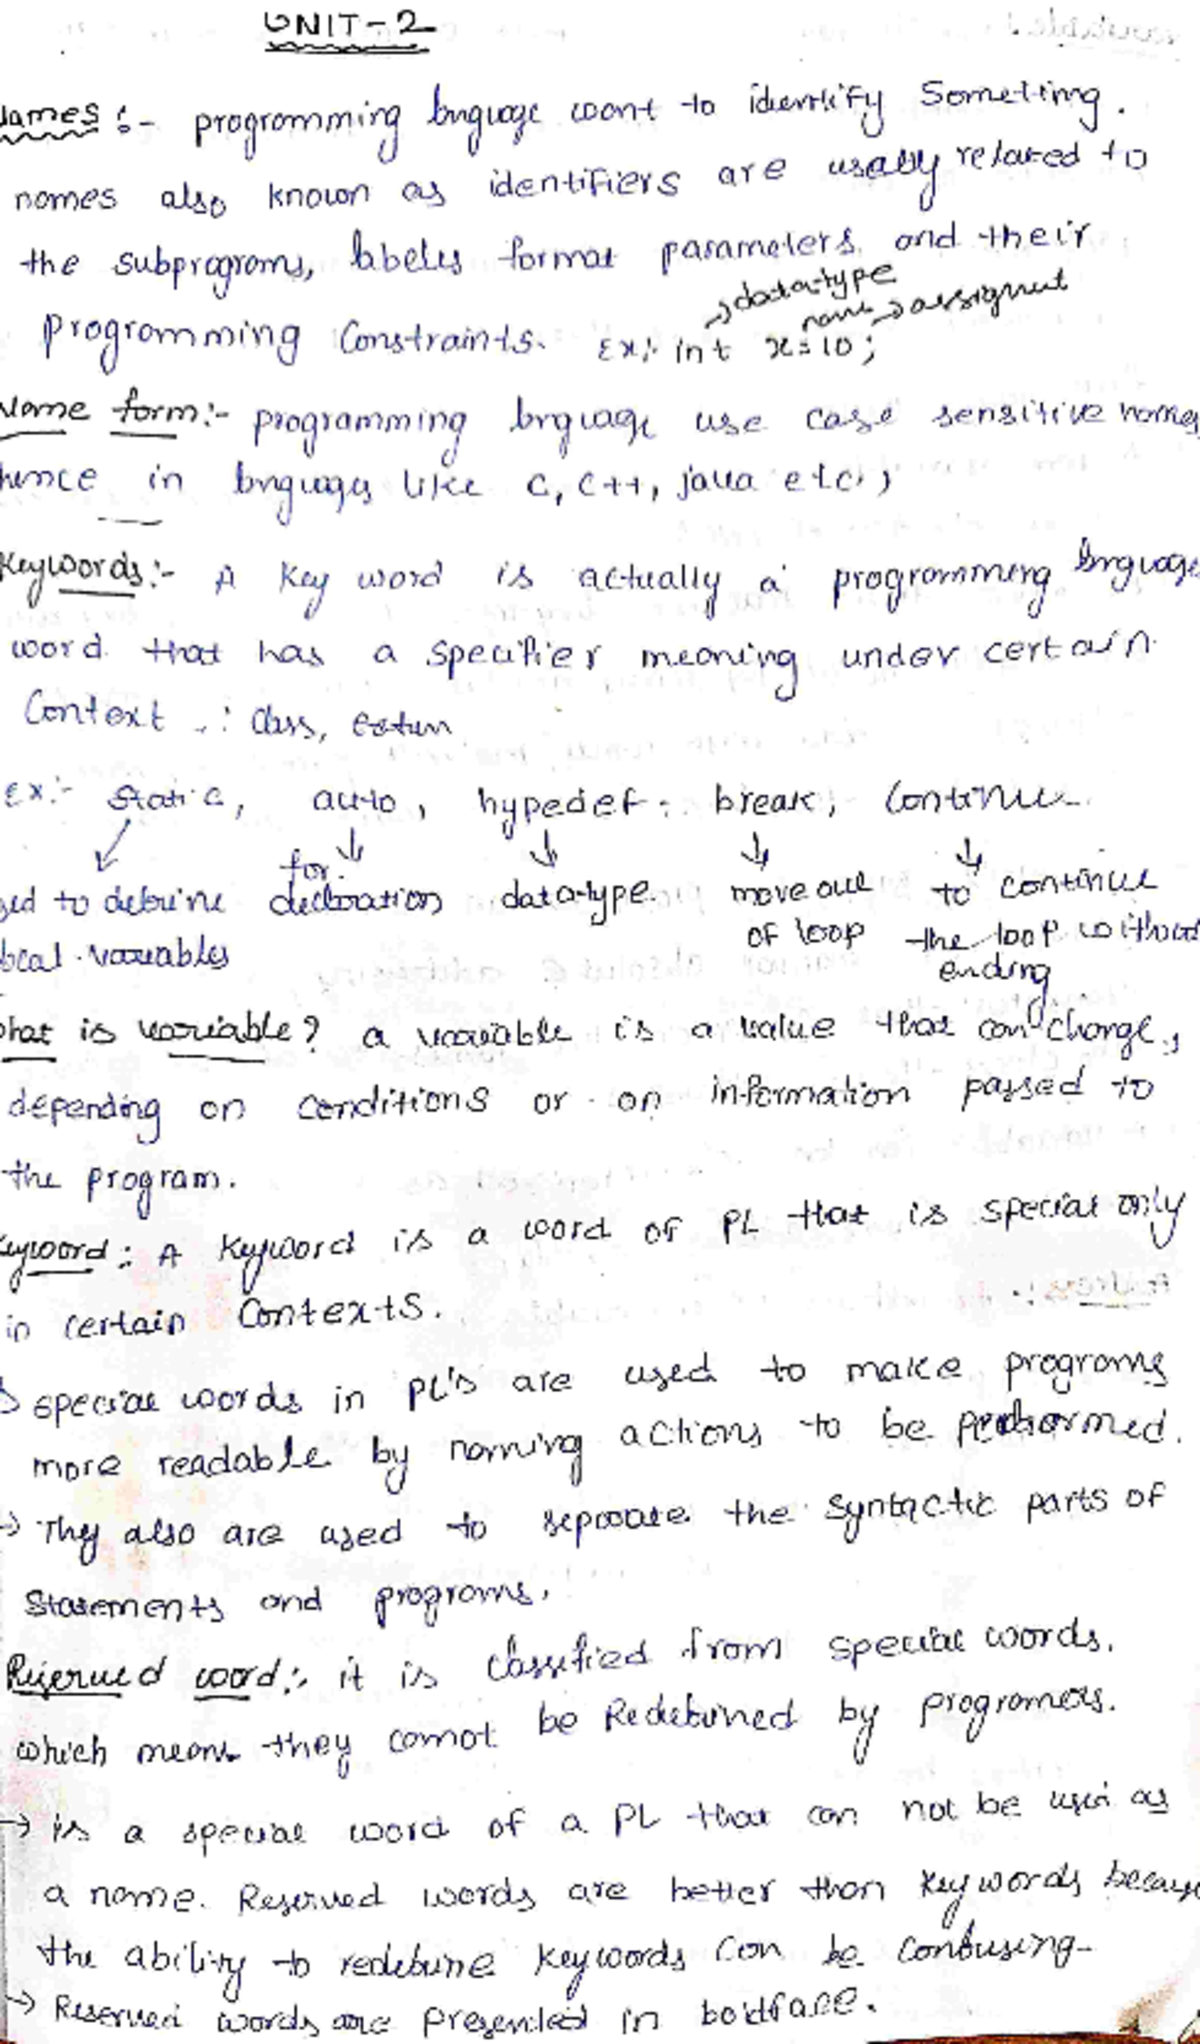 UNIT-2
Names :- programming language want to identify Something.
names also known as identifiers are usally related to
the subprograms, labels formal parameters and their
→ datatype
name → assignment
programming Constraints. Ex:- int x=10;
Name form:- programming language use case sensitive names
hence in languages like C, C++, java etc.,
Keywords:- A Key word is actually a programming language
word that has a specifier meaning under certain
Context .: class, extern
Ex:- static, auto, hypedef, break, continue
for
used to define declaration datatype. move out to continue
local variables of loop the loop without
ending
What is variable? a variable is a value that can change,
depending on conditions or on information passed to
the program.
Keyword: A Keyword is a word of PL that is special only
in certain Contexts.
→ special words in PL's are used to make programs
more readable by naming actions to be performed.
→ They also are used to separate the syntactic parts of
statements and programs.
Reserved word:- it is classified from special words.
which means they cannot be Redefined by programers.
→ is a special word of a PL that can not be used as
a name. Reserved words are better than keywords because
the ability to redefine keywords can be confusing-
→ Reserved words are presented in boldface.